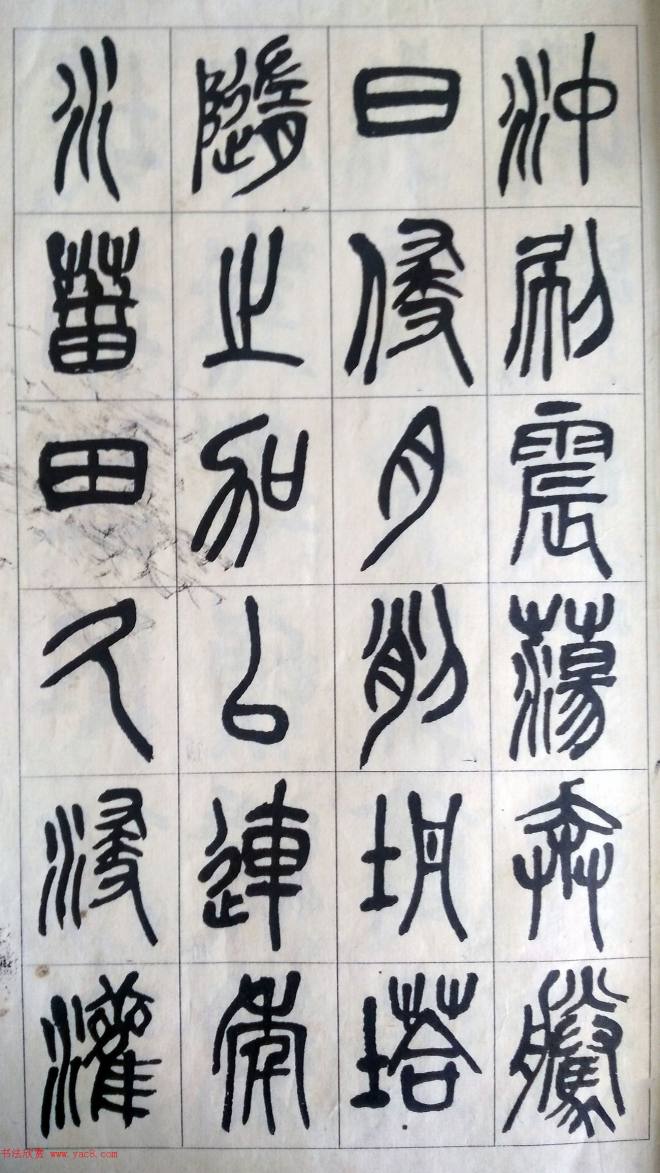 沖刷震蕩奔騰
日侵月削坍塔
隨之加以連
水田久浸灌
书法欣赏 www.yac8.com